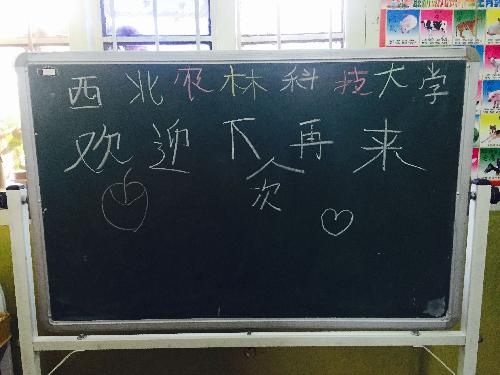 西北农林科技大学
欢迎下次再来